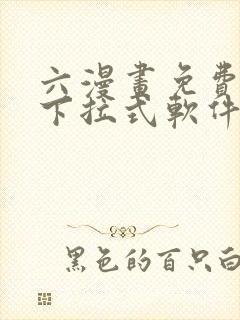 六漫畫免費
下拉式軟件
黑色的百只白